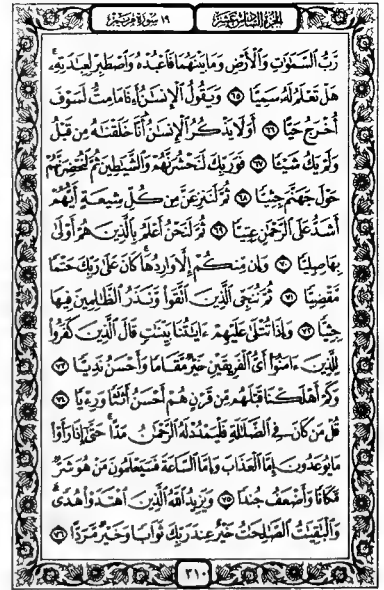 الجزء السادس عشر
١٩ سورة مريم
رَّبُّ ٱلسَّمَٰوَٰتِ وَٱلْأَرْضِ وَمَا بَيْنَهُمَا فَٱعْبُدْهُ وَٱصْطَبِرْ لِعِبَٰدَتِهِۦۚ
هَلْ تَعْلَمُ لَهُۥ سَمِيًّا ٦٥ وَيَقُولُ ٱلْإِنسَٰنُ أَءِذَا مَا مِتُّ لَسَوْفَ
أُخْرَجُ حَيًّا ٦٦ أَوَلَا يَذْكُرُ ٱلْإِنسَٰنُ أَنَّا خَلَقْنَٰهُ مِن قَبْلُ
وَلَمْ يَكُ شَيْـًٔا ٦٧ فَوَرَبِّكَ لَنَحْشُرَنَّهُمْ وَٱلشَّيَٰطِينَ ثُمَّ لَنُحْضِرَنَّهُمْ
حَوْلَ جَهَنَّمَ جِثِيًّا ٦٨ ثُمَّ لَنَنزِعَنَّ مِن كُلِّ شِيعَةٍ أَيُّهُمْ
أَشَدُّ عَلَى ٱلرَّحْمَٰنِ عِتِيًّا ٦٩ ثُمَّ لَنَحْنُ أَعْلَمُ بِٱلَّذِينَ هُمْ أَوْلَىٰ
بِهَا صِلِيًّا ٧٠ وَإِن مِّنكُمْ إِلَّا وَارِدُهَاۚ كَانَ عَلَىٰ رَبِّكَ حَتْمًا
مَّقْضِيًّا ٧١ ثُمَّ نُنَجِّى ٱلَّذِينَ ٱتَّقَوا۟ وَّنَذَرُ ٱلظَّٰلِمِينَ فِيهَا
جِثِيًّا ٧٢ وَإِذَا تُتْلَىٰ عَلَيْهِمْ ءَايَٰتُنَا بَيِّنَٰتٍ قَالَ ٱلَّذِينَ كَفَرُوا۟
لِلَّذِينَ ءَامَنُوٓا۟ أَىُّ ٱلْفَرِيقَيْنِ خَيْرٌ مَّقَامًا وَأَحْسَنُ نَدِيًّا ٧٣
وَكَمْ أَهْلَكْنَا قَبْلَهُم مِّن قَرْنٍ هُمْ أَحْسَنُ أَثَٰثًا وَرِءْيًا ٧٤
قُلْ مَن كَانَ فِى ٱلضَّلَٰلَةِ فَلْيَمْدُدْ لَهُ ٱلرَّحْمَٰنُ مَدًّاۚ حَتَّىٰٓ إِذَا رَأَوْا۟
مَا يُوعَدُونَ إِمَّا ٱلْعَذَابَ وَإِمَّا ٱلسَّاعَةَ فَسَيَعْلَمُونَ مَنْ هُوَ شَرٌّ
مَّكَانًا وَأَضْعَفُ جُندًا ٧٥ وَيَزِيدُ ٱللَّهُ ٱلَّذِينَ ٱهْتَدَوْا۟ هُدًىۗ
وَٱلْبَٰقِيَٰتُ ٱلصَّٰلِحَٰتُ خَيْرٌ عِندَ رَبِّكَ ثَوَابًا وَخَيْرٌ مَّرَدًّا ٧٦
٣١٠